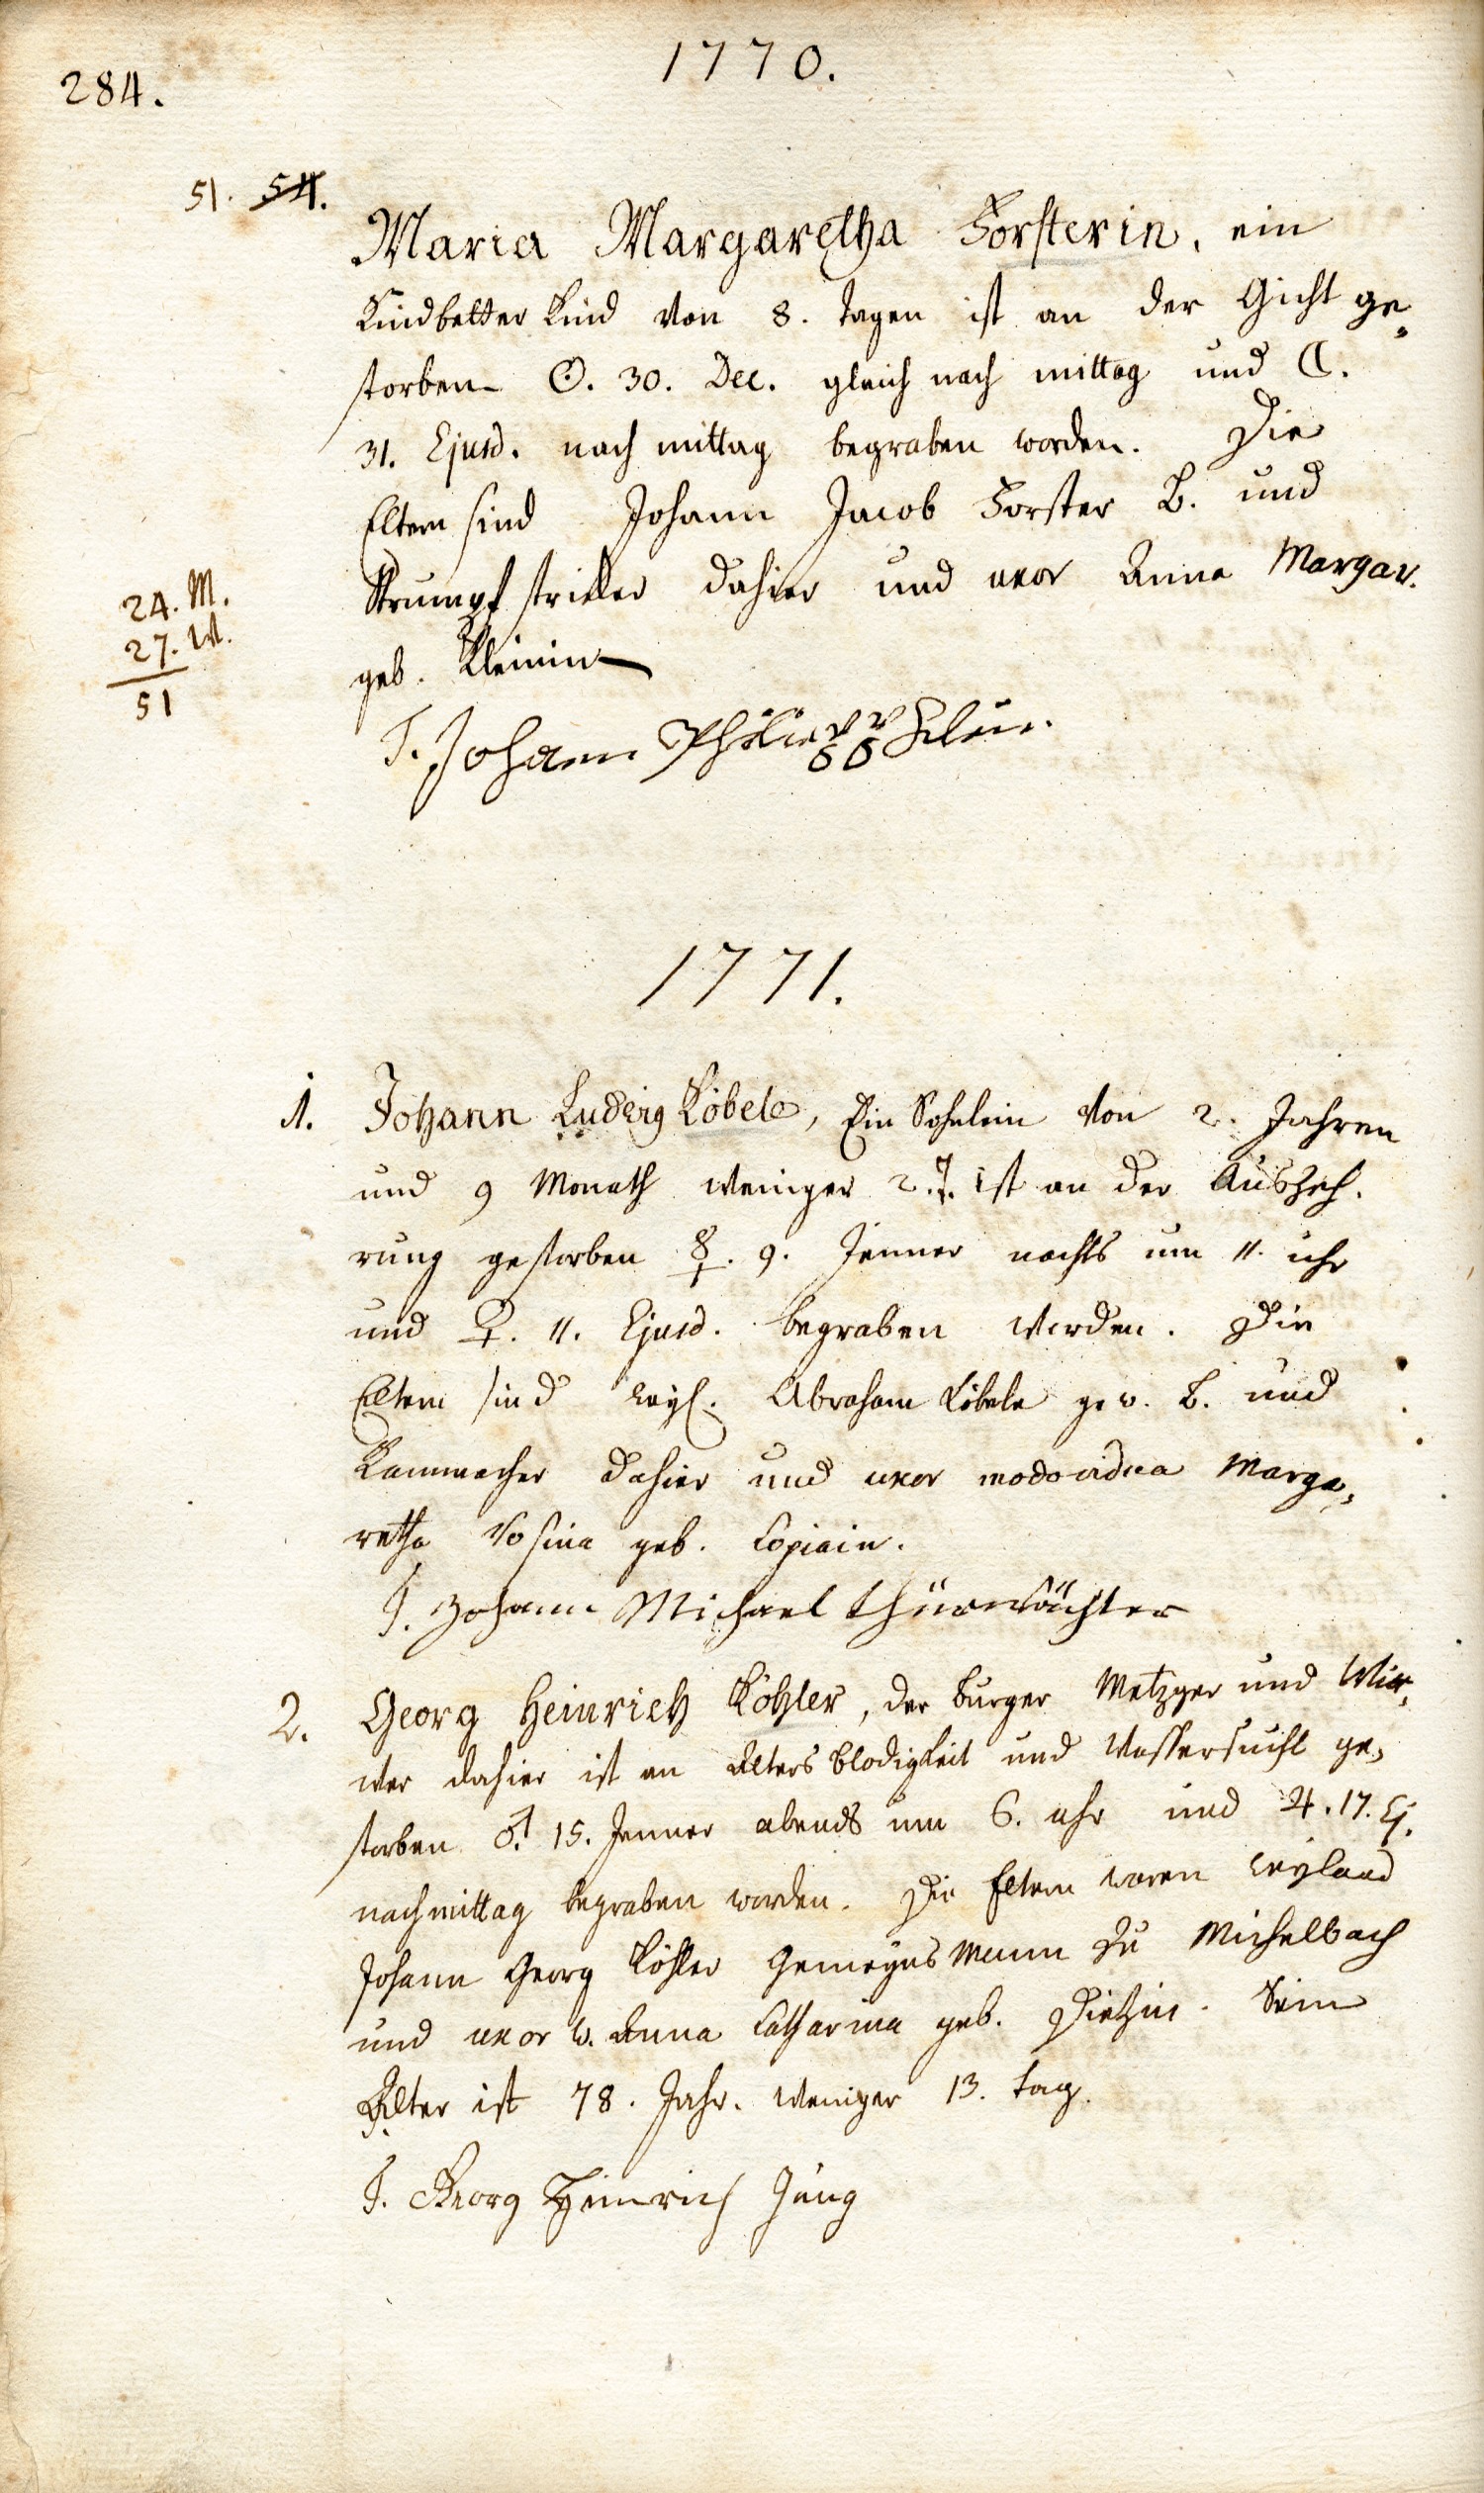 1770.
284.
51. 54.
Maria Margaretha Forsterin, ein
Kindbetter Kind von 8. Tagen ist an der Gicht ge„
storben ☉. 30. Dec. gleich nach mittag und ☾.
31. Ejusd. nach mittag begraben worden. Die
Eltern sind Johann Jacob Forster B. und
Strumpf striker dahier und uxor Anna Margar.
geb. Kleinin
24. M.
27. W.
51
T. Johann Philipp Klein.
1771.
1. Johann Ludwig Köbele, Ein Söhnlein von 2. Jahren
und 9 Monath weniger 2. T. ist an der Auszeh.
rung gestorben ☿. 9. Jenner nachts um 11. uhr
und ♀. 11. Ejusd. begraben worden. Die
Eltern sind weyl. Abraham Köbele gew. B. und
Kammacher dahier und uxor modo vidua Marga„
retha Rosina geb.
T. Johann Michael Thürwächter
2. Georg Heinrich Köhler, der burger Metzger und Wit„
wer dahier ist an Alters blodigkeit und Wassersucht ge„
storben ♂. 15. Jenner abends um 6. uhr und ♃. 17. Ej.
nachmittag begraben worden. Die Eltern waren weyland
Johann Georg Köhler Gemeyns Mann zu Michelbach
und uxor w. Anna Catharina geb. Dietzin. Sein
Alter ist 78. Jahr. weniger 13. tag.
T. Georg Heinrich Jung